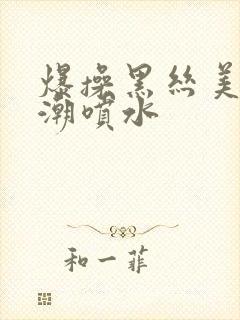 爆操黑丝美
潮喷水
和一菲